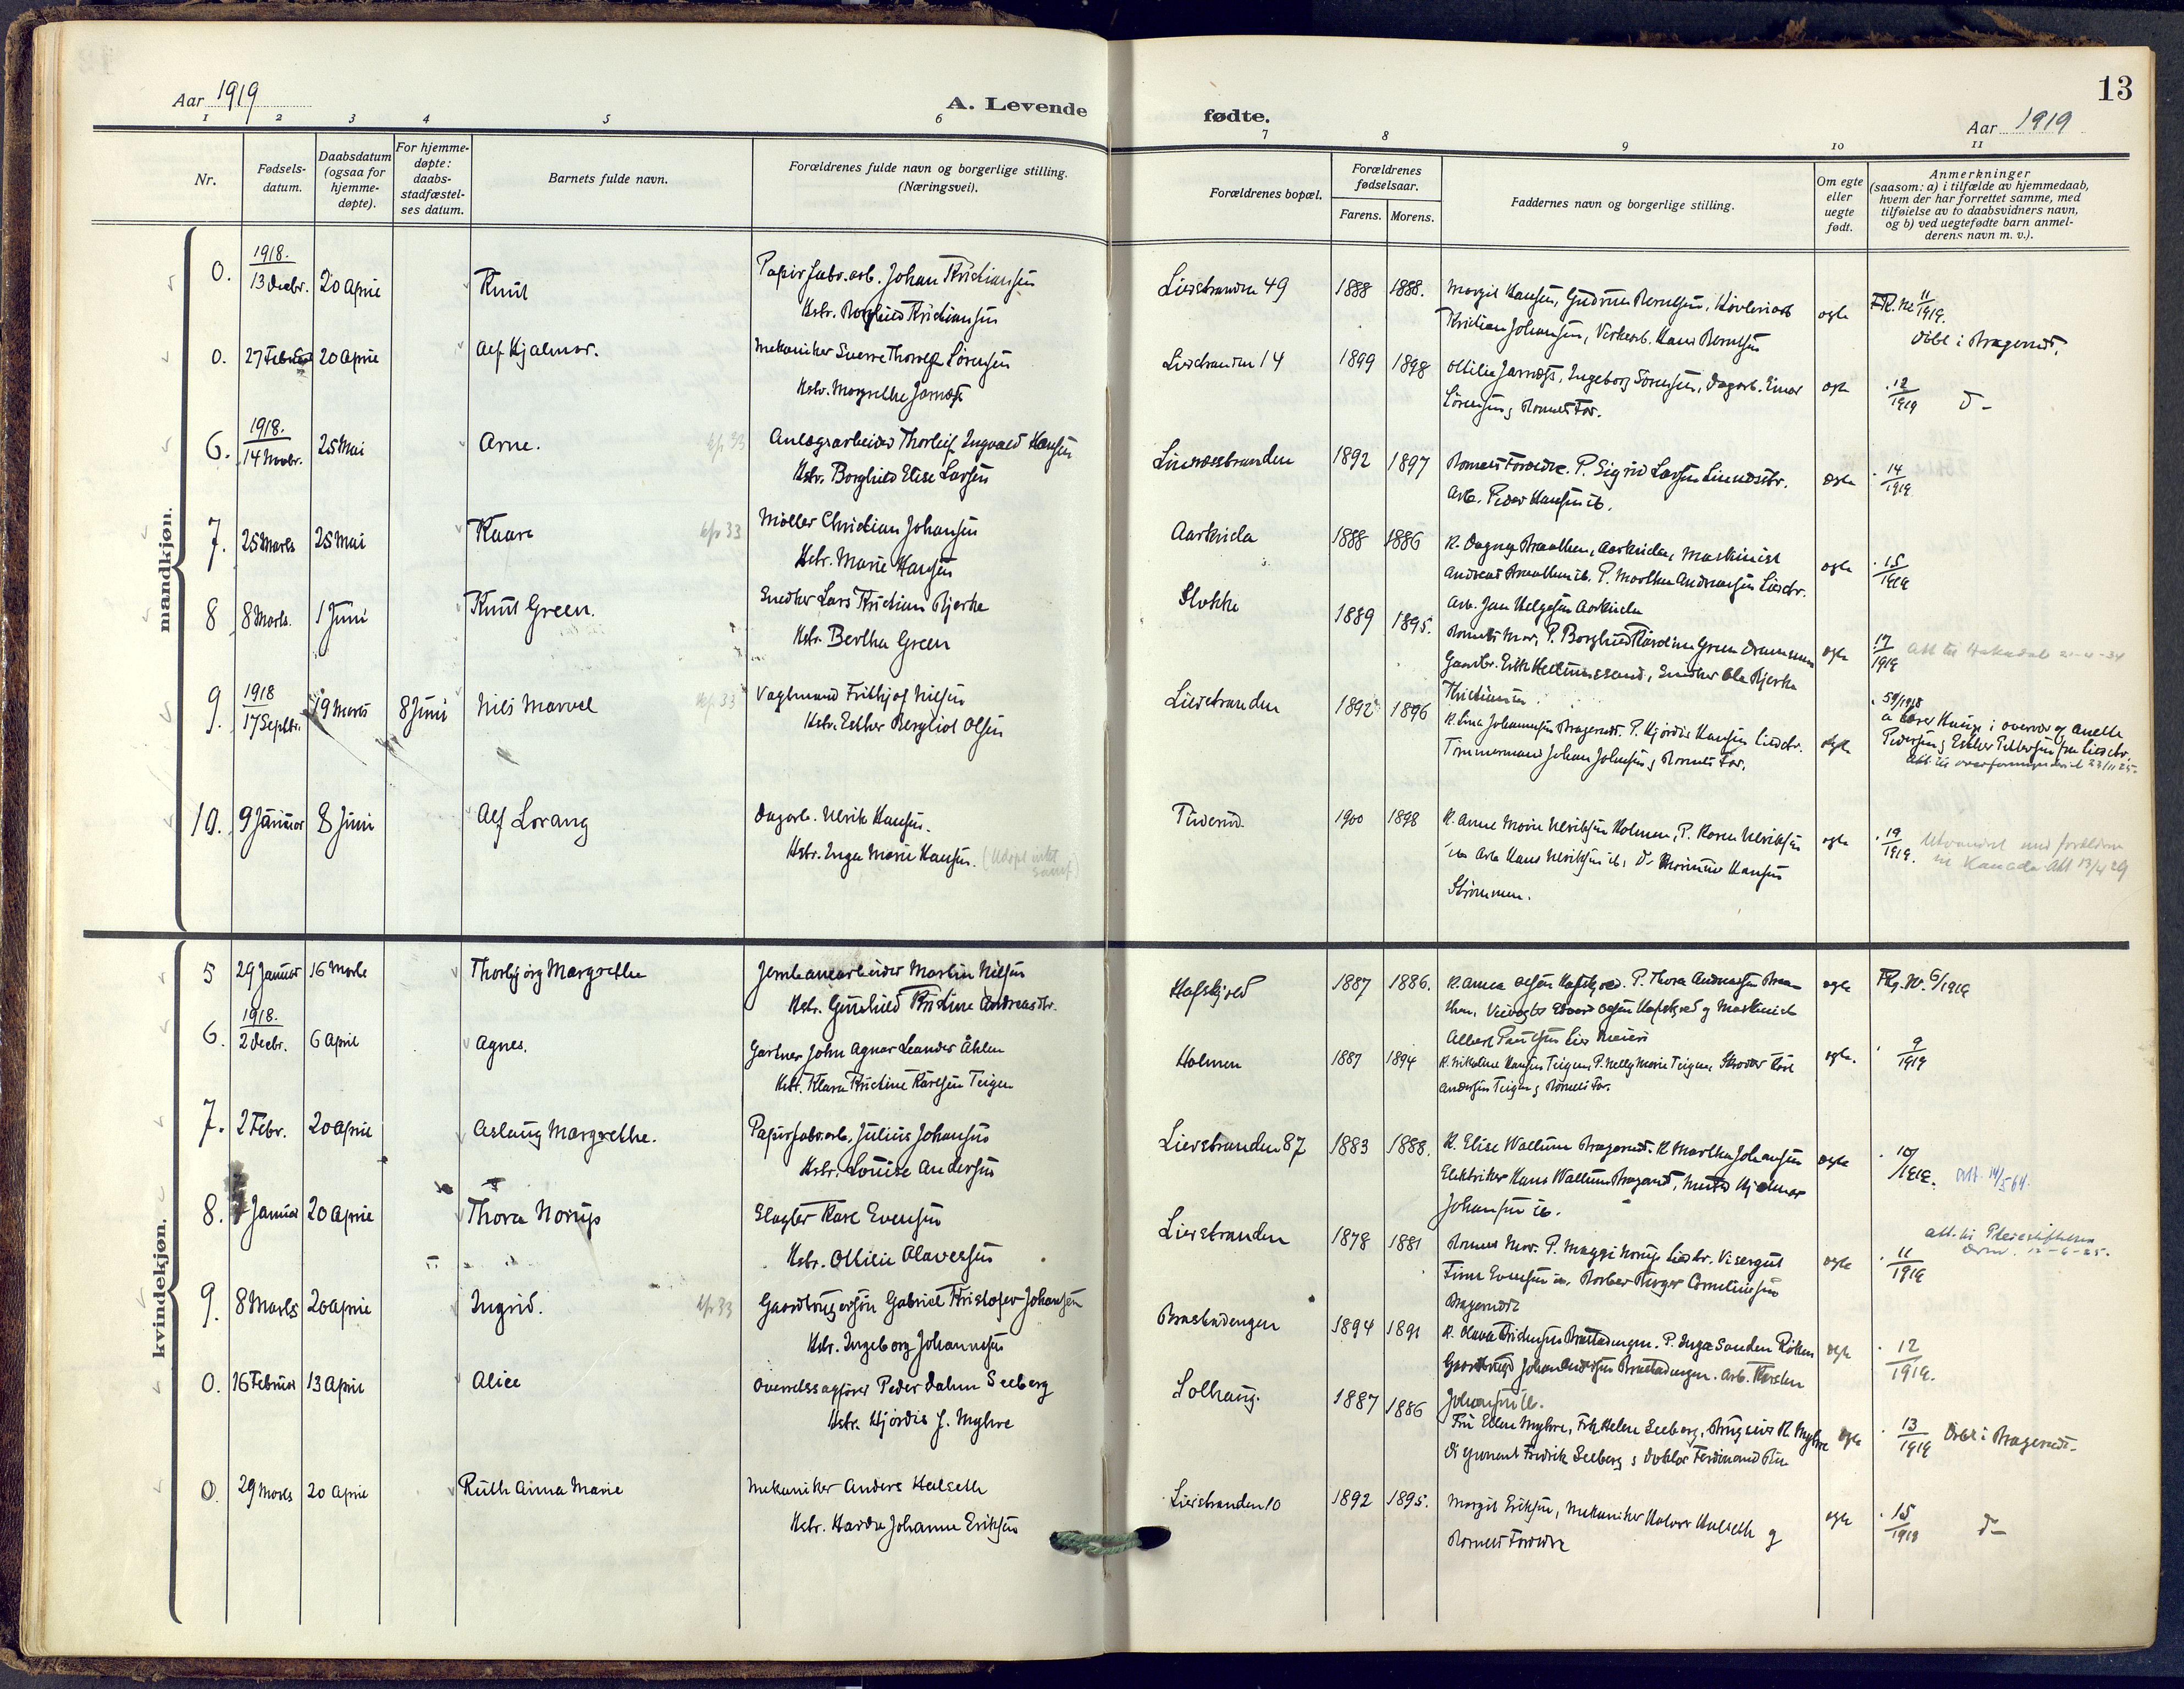 13
Aar 1919
A. Levende
fødte.
Aar 1919
1 2 3 4 5 6 7 8 9 10 11
Nr.
Fødsels-
datum.
Daabsdatum
(ogsaa for
hjemme-
døpte).
For hjemme-
døpte:
daabs-
stadfæstel-
ses datum.
Barnets fulde navn.
Forældrenes fulde navn og borgerlige stilling.
(Næringsvei).
Forældrenes bopæl.
Forældrenes
fødselsaar.
Farens. Morens.
Faddernes navn og borgerlige stilling.
Om egte
eller
uegte
født.
Anmerkninger
(saasom: a) i tilfælde av hjemmedaab,
hvem der har forrettet samme, med
tilføielse av to daabsvidners navn,
og b) ved uegtefødte barn anmel-
derens navn m. v.).
mandkjøn.
0. 1918. 13 Decbr. 20 April Knut
Papirfabr.arb. Johan Kristiansen
Hstr. Borghild Kristiansen
Lierstranden 49 1888 1888.
Margit Hansen, Gudrun Berntsen,
Kristian Johansen, Verksarb. Hans Berntsen
egte 11/1919.
Døbt i Bragernes.
0. 27 Februar 20 April Alf Hjalmar.
Mekaniker Sverre Thorvald Sørensen
Hstr. Margrethe
Lierstranden 14 1899 1898
Ingeborg Sørensen, Dagarb. Einar
Sørensen, Barnets Far.
egte 12/1919 D-
6. 1918. 14 Novbr. 25 Mai Arne. kfr 33
Anlægsarbeider Thorleif Ingvald Hansen
Hstr. Borghild Elise Larsen
1892 1897
Barnets Forældre. P. Sigrid Larsen
Arb. Peder Hansen ib.
egte 14/1919
7. 25 Marts 25 Mai Kaare kfr 33
Møller Christian Johansen
Hstr. Marie Hansen
Aarkvisla 1888 1886
K. Dagny Braathen, Aarkvisla, Maskinist
Andreas Braathen ib. P. Marthe Andreasen Lierstr.
Arb. Jan Helgesen Aarkvisla
egte 15/1919
8 8 Marts. 1 Juni Knut Green.
Snedker Lars Kristian Bjerke
Hstr. Bertha Green
Stokke 1889 1895.
Barnets Mor, P. Borghild Green Drammen
Snedker Ole Bjerke
Kristiania
egte 17/1919
9. 1918 17 Septbr. 19 Marts 8 Juni Nils Marvel kfr 33
Vagtmand Fridtjof Nilsen
Hstr. Esther Bergliot Olsen
Lierstranden 1892 1896
K. Lina Johannesen Bragernes. P. Hjørdis Hansen Lierstr.
Tømmermand Johan Johnsen, Barnets Far.
egte 59/1918
Pedersen, Esther Pettersen fra Lierstr.
10. 9 Januar 8 Juni Alf Lorang
Dagarb. Ulrik Hansen.
Hstr. Inga Marie Hansen.
Tuverud 1900 1898
K. Anne Marie Ulriksen Holmen, P. Karen Ulriksen
ib. Arb. Hans Ulriksen ib,
Hansen
Strømmen.
egte 19/1919. Utvandret med forældrene
til Kanada. Att 13/4 29
kvindekjøn.
5 29 Januar 16 Marts Thorbjørg Margrethe
Jernbanearbeider Martin Nilsen
Hstr. Gunhild Kristine Andreasdtr.
Hafskjold 1887 1886.
K. Anna Olsen Hafskjold. P. Thora Andreasen Braa-
then, Edvard Olsen Hafskjold og Maskinist
Albert Paulsen Lier Meieri
egte 6/1919
6. 1918. 2 Decbr. 6 April Agnes.
Gartner John Agnar Leander Åhlen
Hstr. Klara Kristine Karlsen Teigen
Holmen 1887 1894
K. Nikoline Hansen Teigen, P. Nelly Marie Teigen, Skredder Karl
Andersen Teigen, Barnets Far.
egte. 9/1919
7. 2 Febr. 20 April Aslaug Margrethe.
Papirfabr.arb. Julius Johansen
Hstr. Louise Andersen
Lierstranden 87 1883 1888.
K. Elise Wallum Bragernes. K Martha Johansen
Elektriker Hans Wallum Bragernes, Hjalmar
Johansen ib.
egte 10/1919. Att. 14/5 64.
8. Januar 20 April Thora Norup
Slagter Karl Evensen
Hstr. Ottilie Olavesen
Lierstranden 1878 1881
Barnets Mor. P. Maggi Norup Lierstr. Visergut
Finn Evensen ib, Barber Birger Corneliussen
Bragernes
egte 11/1919
9. 8 Marts 20 April Ingrid. kfr 33
Gaardbrugersøn Gabriel Kristofer Johansen
Hstr. Ingeborg Johannesen
Brastadengen 1894 1891
Brastadengen. P. Inga Sanden Røken
Gaardbrug. Johan Andersen Brastadengen. Arb. Karsten
Johansen ib.
egte 12/1919.
0. 16 Februar 13 April Alice
Overretssagfører Peder Dahm Seeberg
Hstr. Hjørdis J. Myhre
Solhaug. 1887 1886
Fru Ellen Myhre, Frk Helene Seeberg, Bruseier R. Myhre
Disponent Fredrik Seeberg, Doktor Ferdinand
egte 13/1919 Døbt i Bragernes.
0. 29 Marts 20 April Ruth Anna Marie
Mekaniker Anders Halseth
Hstr. Johanne Eriksen
Lierstranden 10 1892 1895.
Margit Eriksen, Mekaniker Halvor Halseth og
Barnets Forældre
egte 15/1919 D-